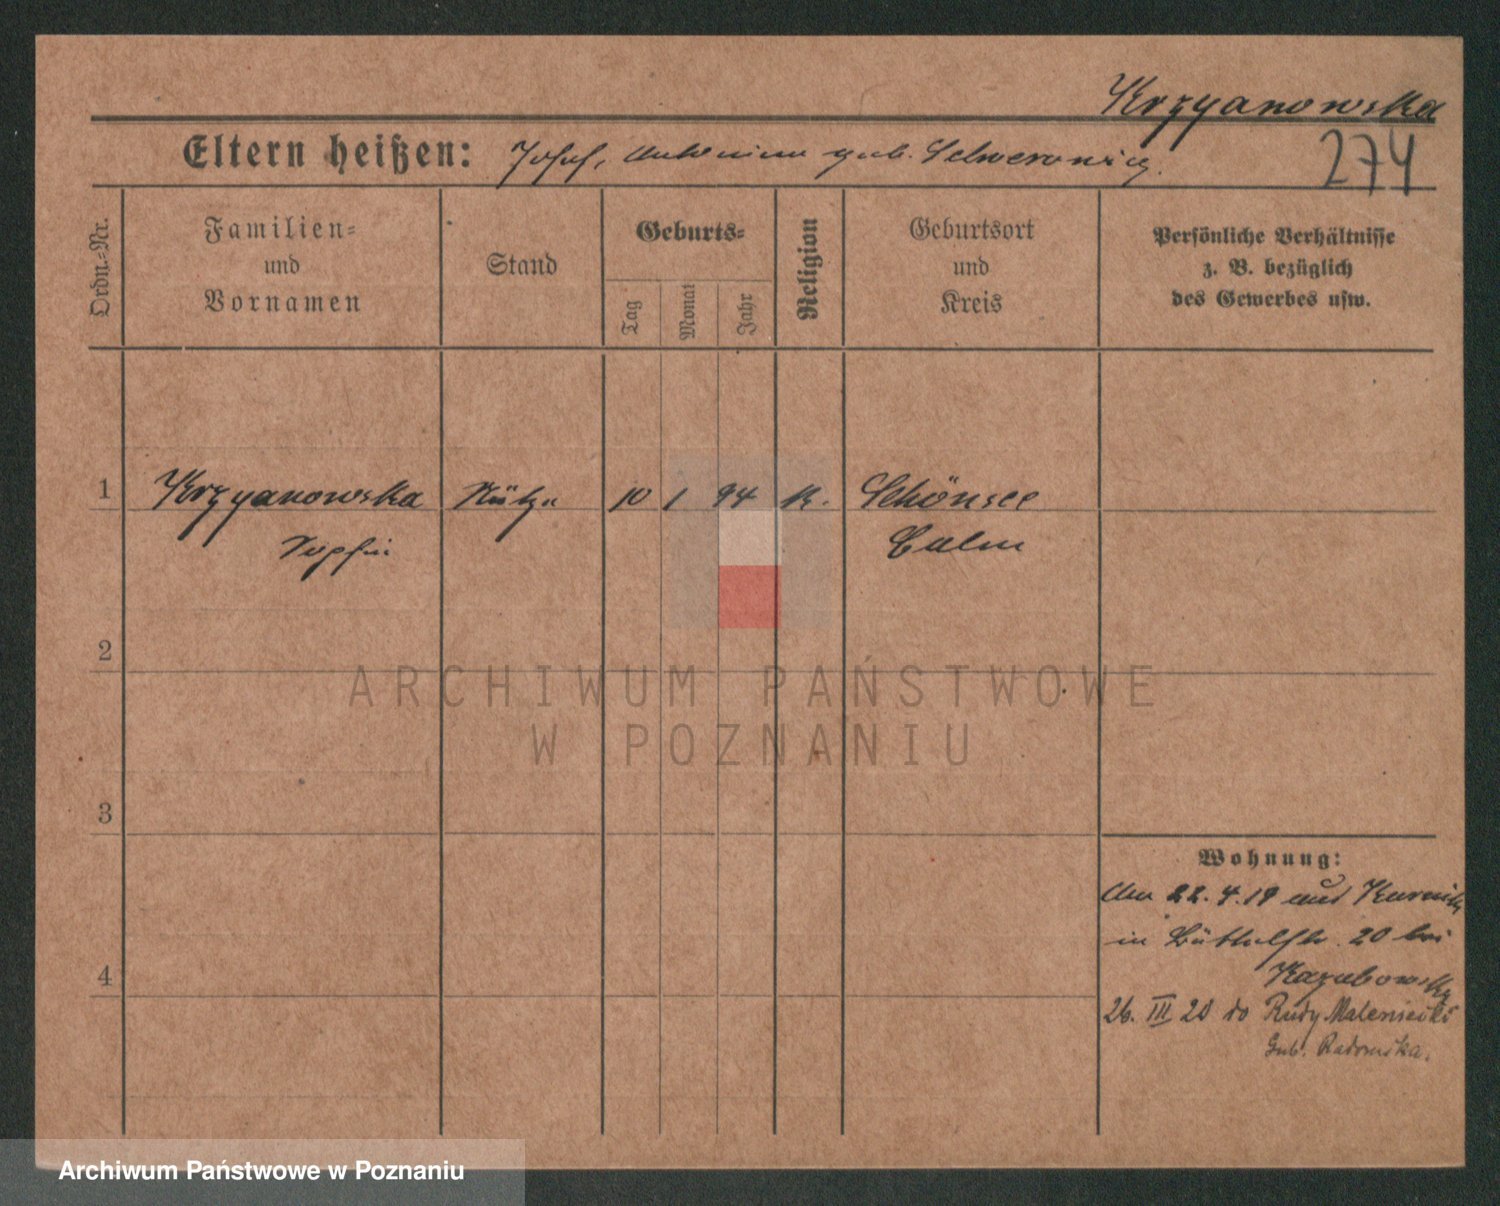 Krzyanowska
Eltern heißen: Josef, Antonina geb.
274
Ordn.-Nr.
Familien-
und
Vornamen
Stand
Geburts-
Tag
Monat
Jahr
Religion
Geburtsort
und
Kreis
Persönliche Verhältnisse
z. B. bezüglich
des Gewerbes usw.
1 Krzyanowska 10 1 94 K. Schönsee
Sophie Culm
2
3
4
Wohnung:
Am 22.4.18 aus Kurnik
in 20 bei
26. III 20 do Rudy Maleniecki
Gub. Radomska.
ARCHIWUM PAŃSTWOWE
W POZNANIU
Archiwum Państwowe w Poznaniu